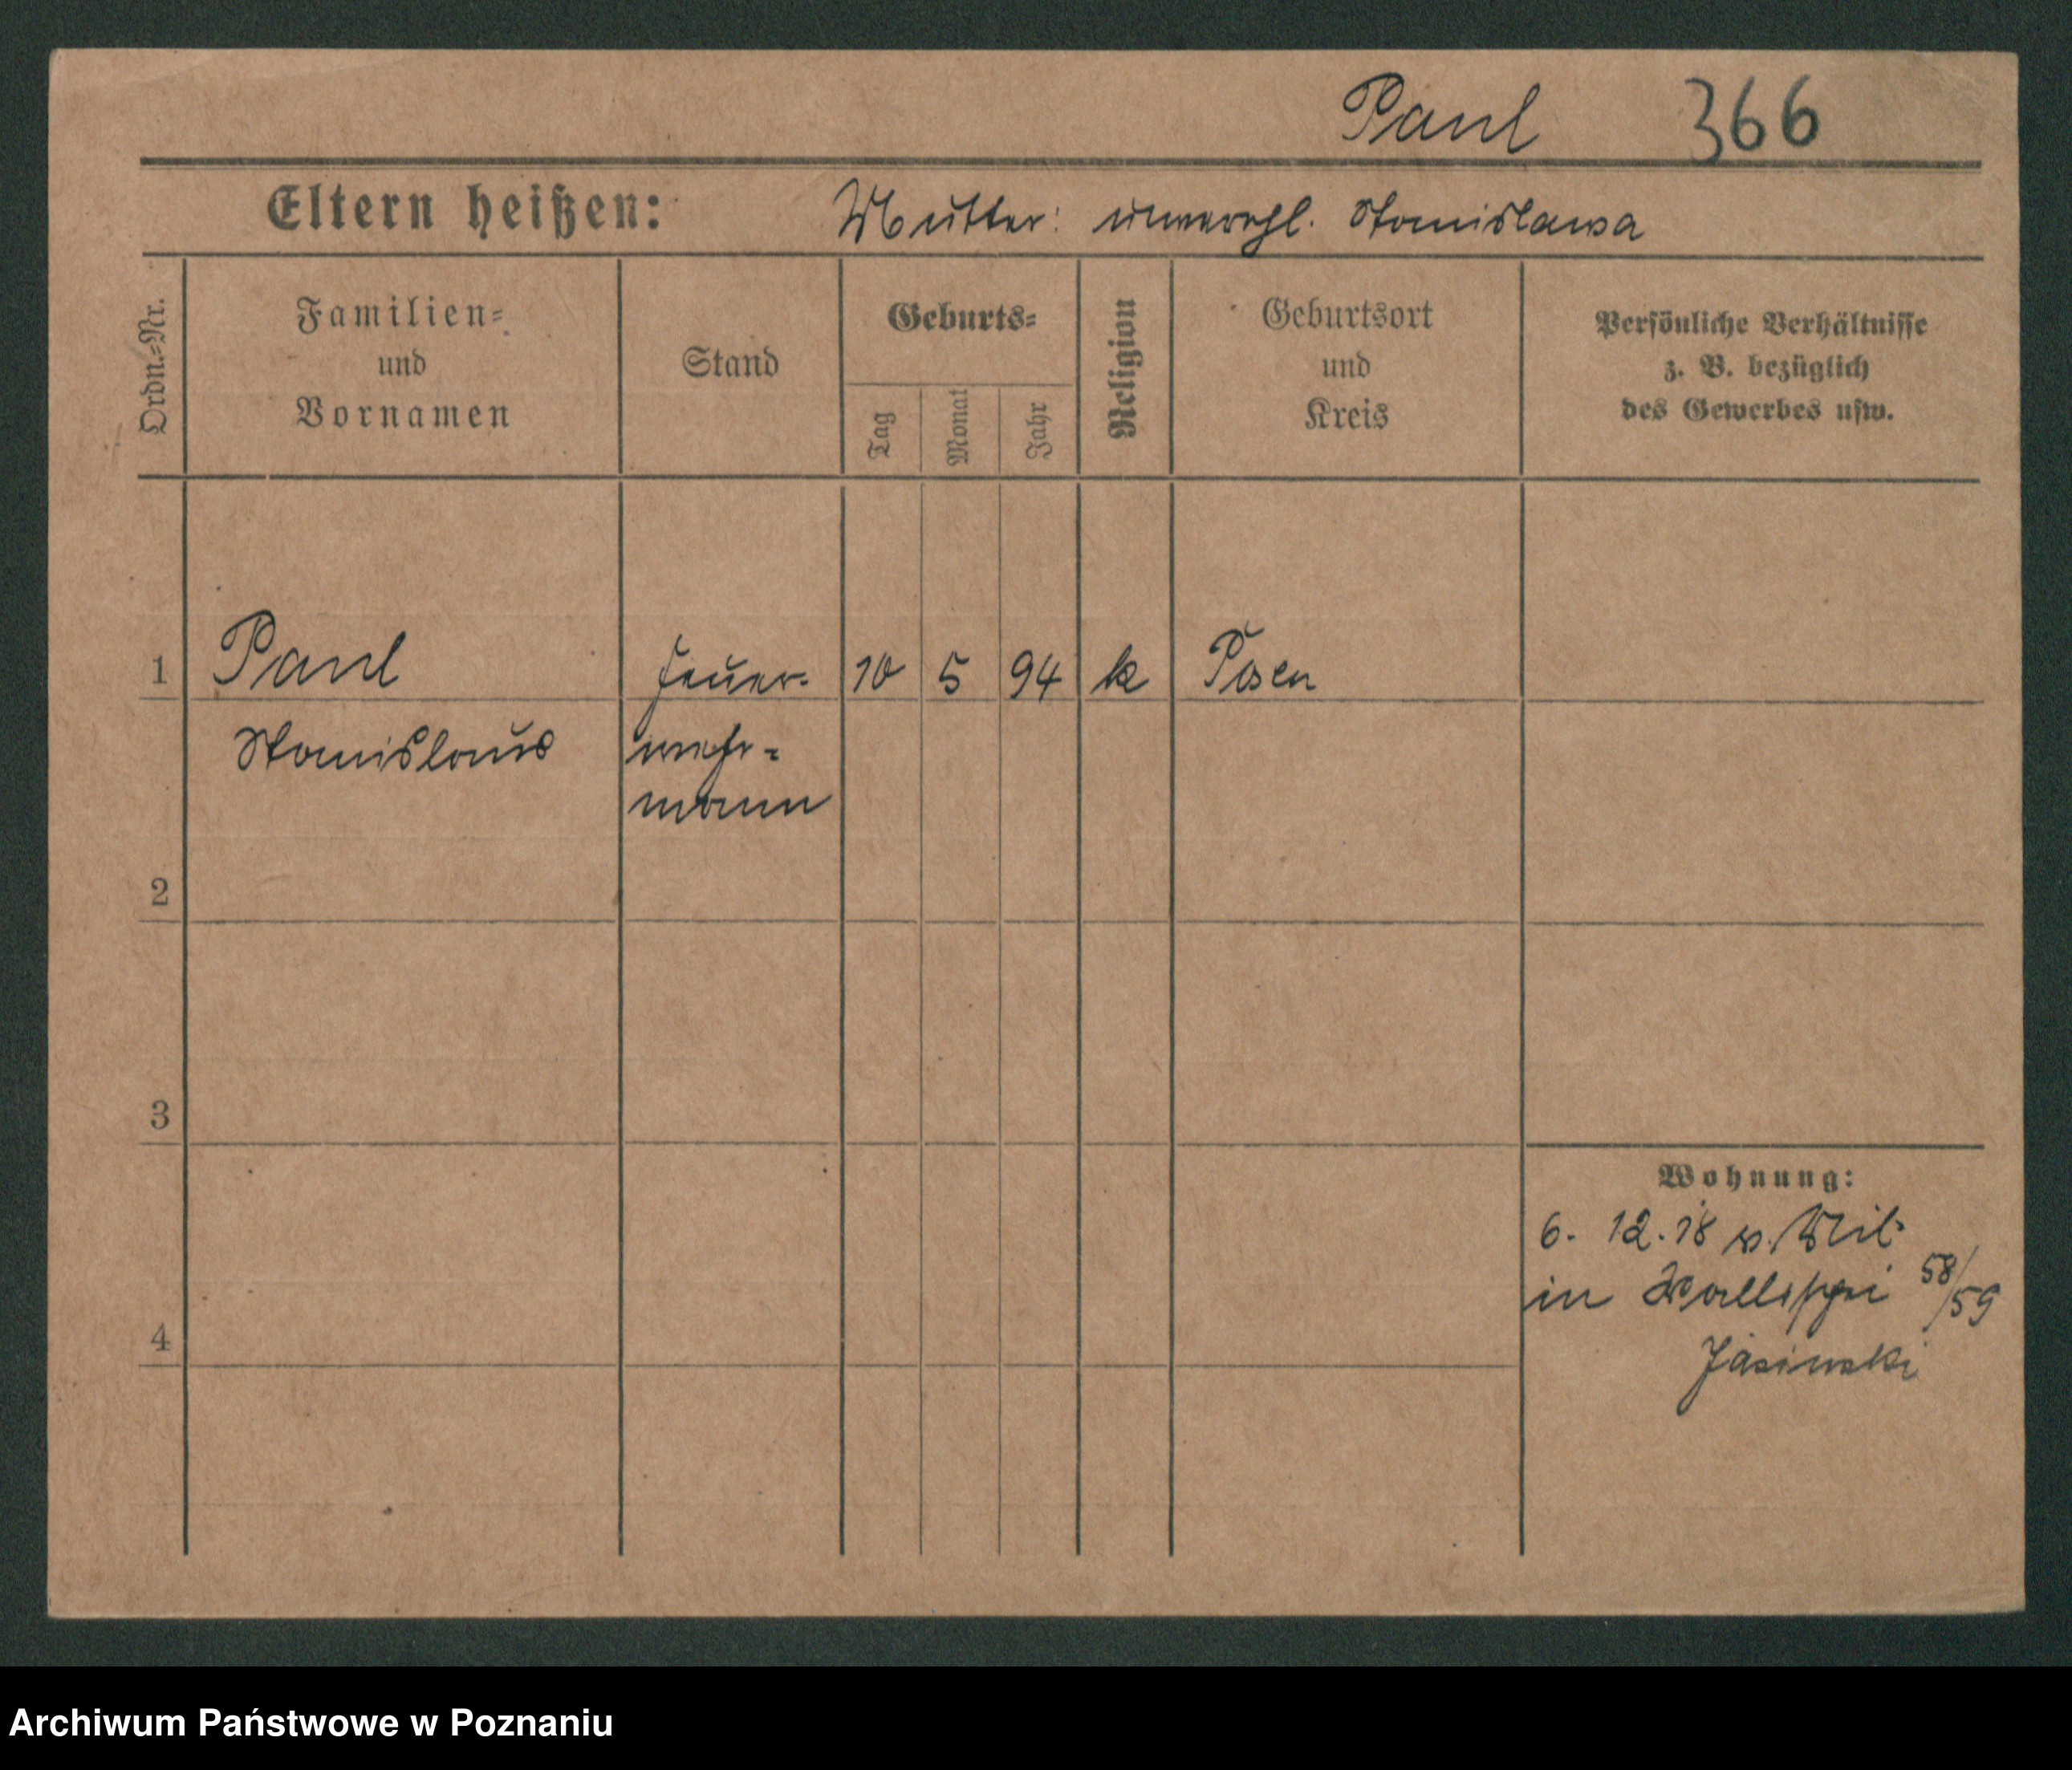 Paul 366
Eltern heißen: Mutter: unverehl. Stanislawa
Ordn.-Nr.
Familien-
und
Vornamen
Stand
Geburts-
Tag
Monat
Jahr
Religion
Geburtsort
und
Kreis
Persönliche Verhältnisse
z. B. bezüglich
des Gewerbes usw.
1 Paul Feuer- 10 5 94 k Posen
Stanislaus wehr-
mann
2
3
Wohnung:
6. 12. 18 v. Mil.
in 58/59
4
Jasinski
Archiwum Państwowe w Poznaniu